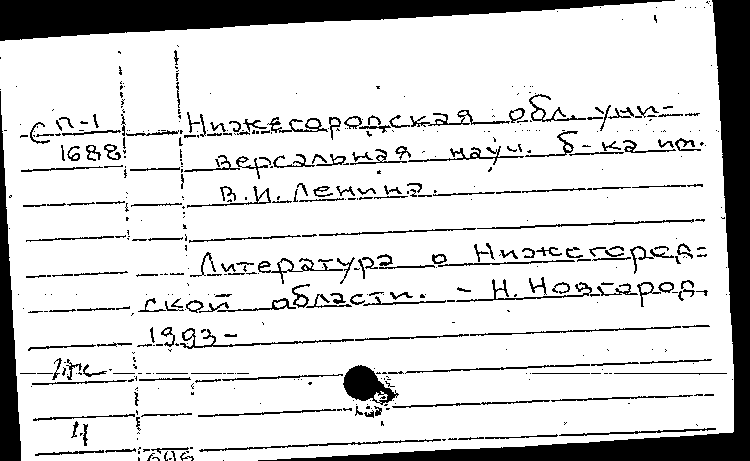 СП-1
1688
Нижегородская обл. уни-
версальная науч. б-ка им.
В.И. Ленина.
Литература о Нижегород=
ской области. - Н. Новгород,
1993-
4